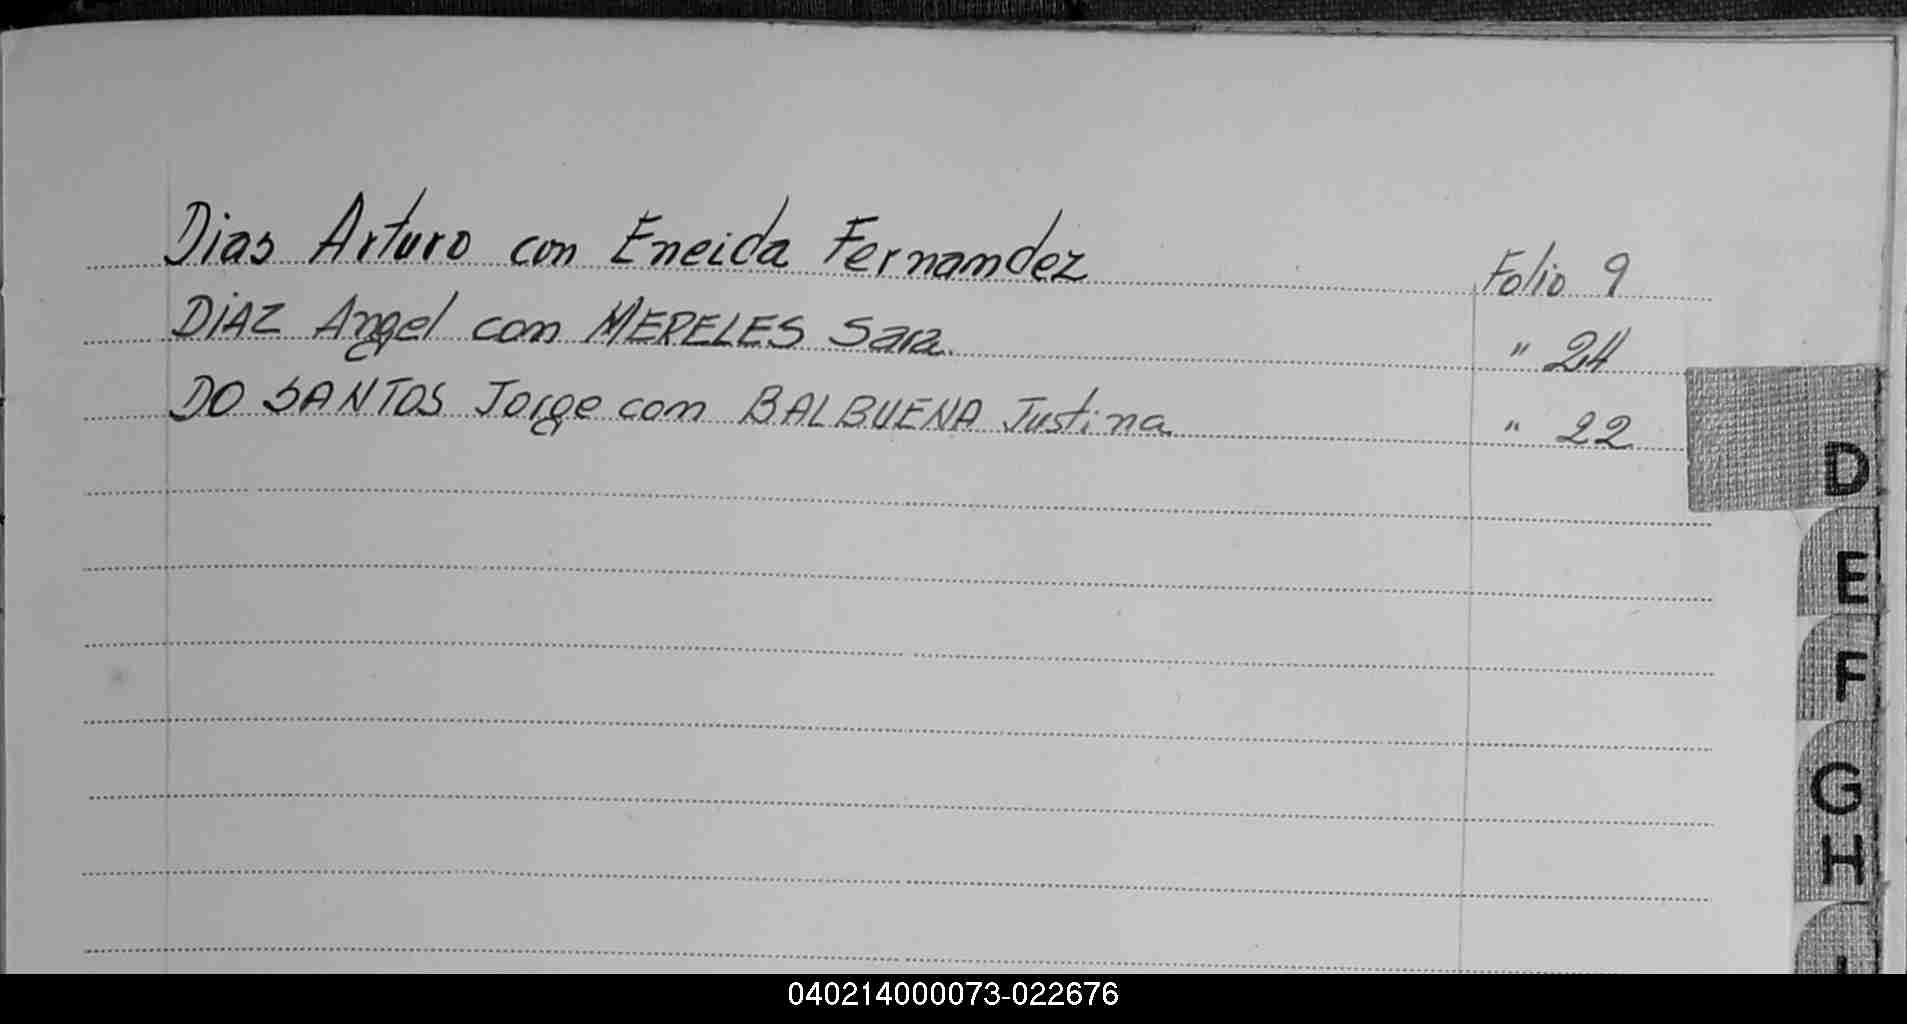 Dias Arturo con Eneida Fernamdez Folio 9
DiAZ Angel con MERELES Sara " 24
DO SANTOS Jorge com BALBUENA Justina " 22
D
E
F
G
H
I
040214000073-022676